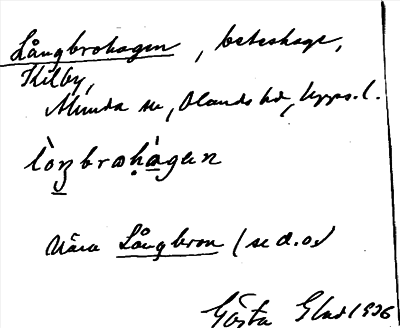 Långbrohagen, beteshage,
Kilby,
Alunda sn, Olands hd, Upps. l.
lòŋbrohàgen
Nära Långbron (se d. o.)
Gösta Glad 1936